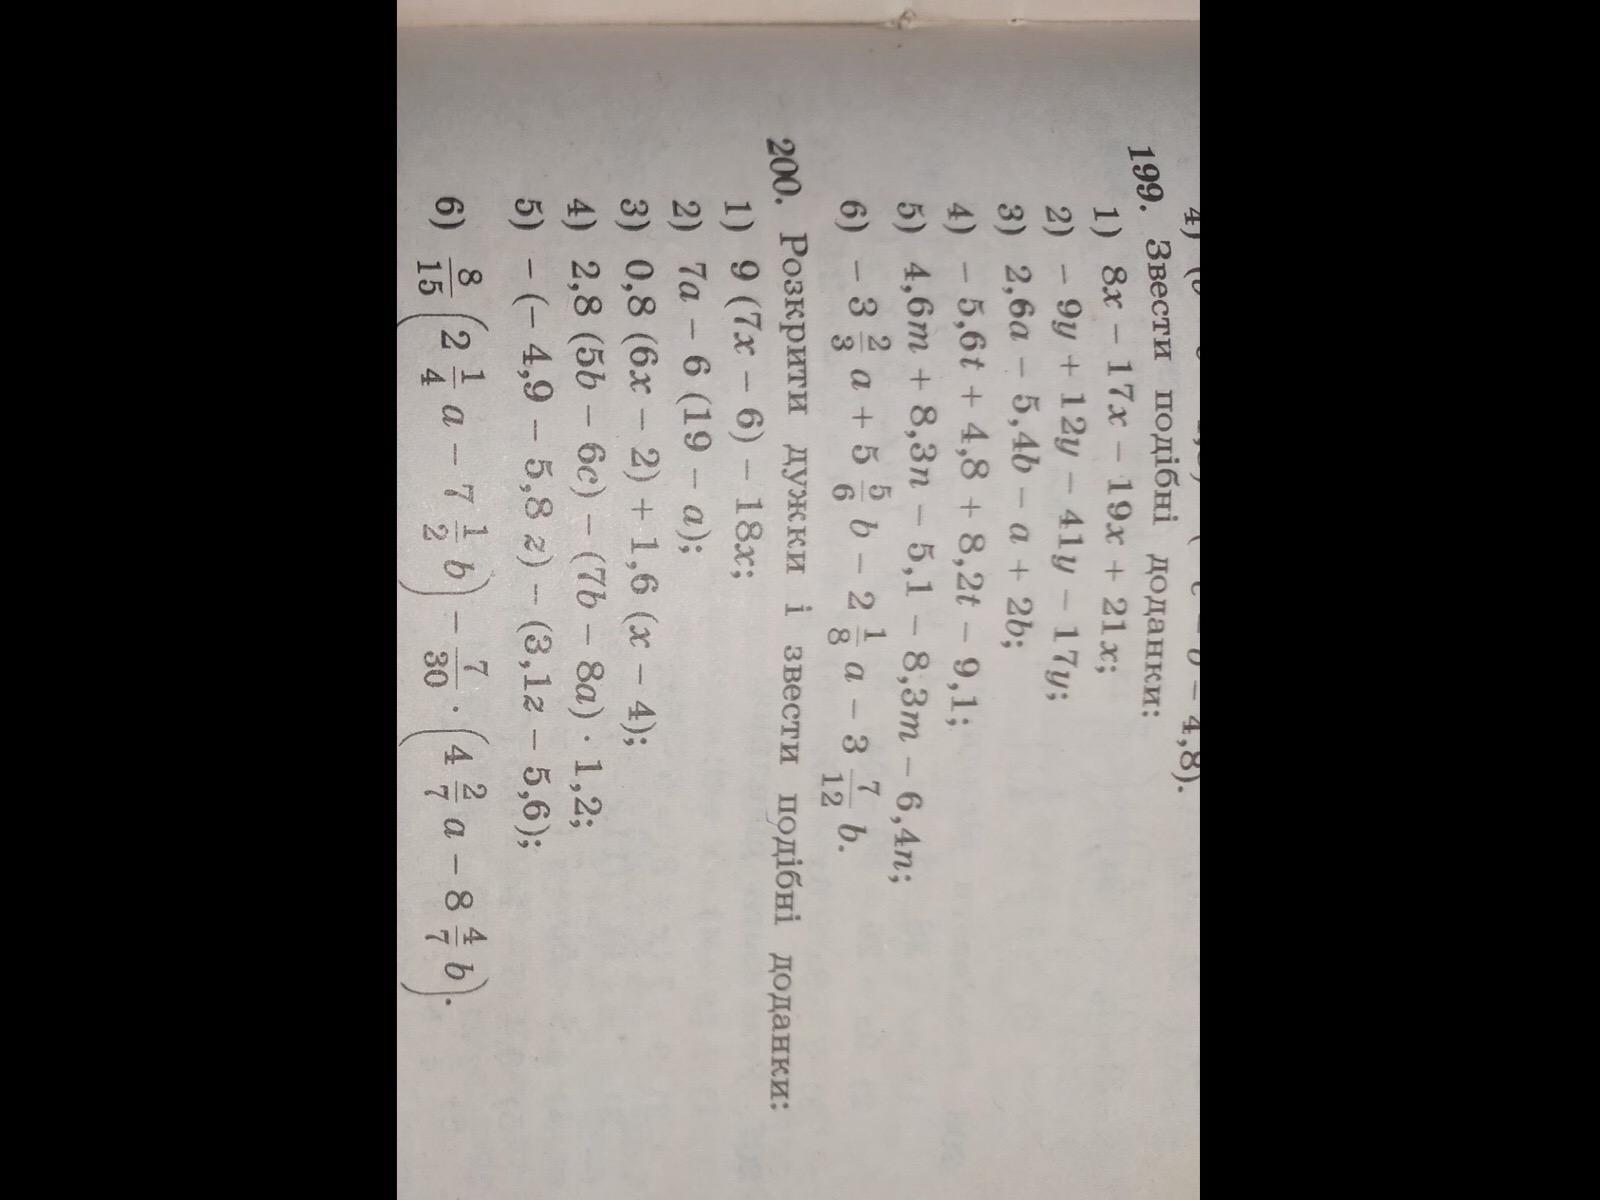 199. Звести подібні доданки:
1) 8x − 17x − 19x + 21x;
2) − 9y + 12y − 41y − 17y;
3) 2,6a − 5,4b − a + 2b;
4) − 5,6t + 4,8 + 8,2t − 9,1;
5) 4,6m + 8,3n − 5,1 − 8,3m − 6,4n;
6) − 3 2/3 a + 5 5/6 b − 2 1/8 a − 3 7/12 b.
200. Розкрити дужки і звести подібні доданки:
1) 9 (7x − 6) − 18x;
2) 7a − 6 (19 − a);
3) 0,8 (6x − 2) + 1,6 (x − 4);
4) 2,8 (5b − 6c) − (7b − 8a) · 1,2;
5) − (− 4,9 − 5,8 z) − (3,1z − 5,6);
6) 8/15 (2 1/4 a − 7 1/2 b) − 7/30 · (4 2/7 a − 8 4/7 b).